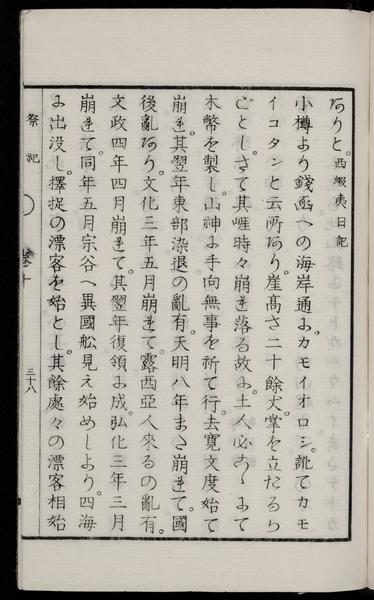 ありと。西蝦夷日記
小樽より錢函への海岸通にカモイオロシ。訛てカモ
イコタンと云所あり。崖高さ二十餘丈。掌を立たるが
ごとし。さて其崕時々崩を落る故に。土人必あゝにて
木幣を製し。山神に手向無事を祈て行去。寛文度始て
崩を。其翌年東部染退の亂有。天明八年まさ崩をて。國
後亂あり。文化三年五月崩をて。露西亞人來るの亂有。
文政四年四月崩をて。其翌年復領に成。弘化三年三月
崩をて同年五月宗谷へ異國舩見え始めしより。四海
に出没し。擇捉の漂客を始とし。其餘處々の漂客相始
祭祀
卷十
三十八